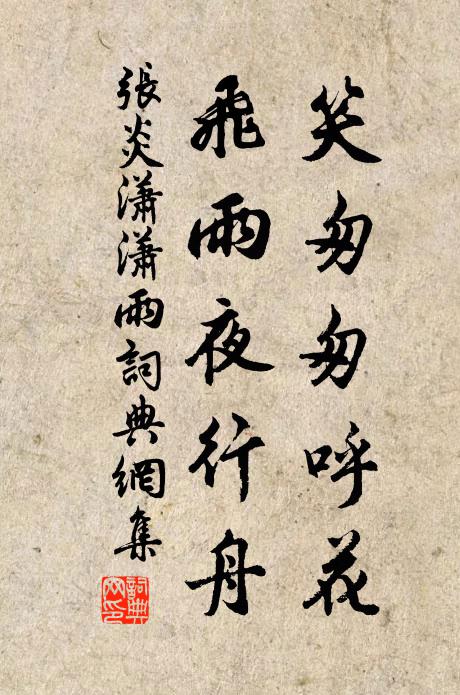 笑匆匆呼花
飛雨夜行舟
張炎瀟瀟雨詞典網集
詞典网印